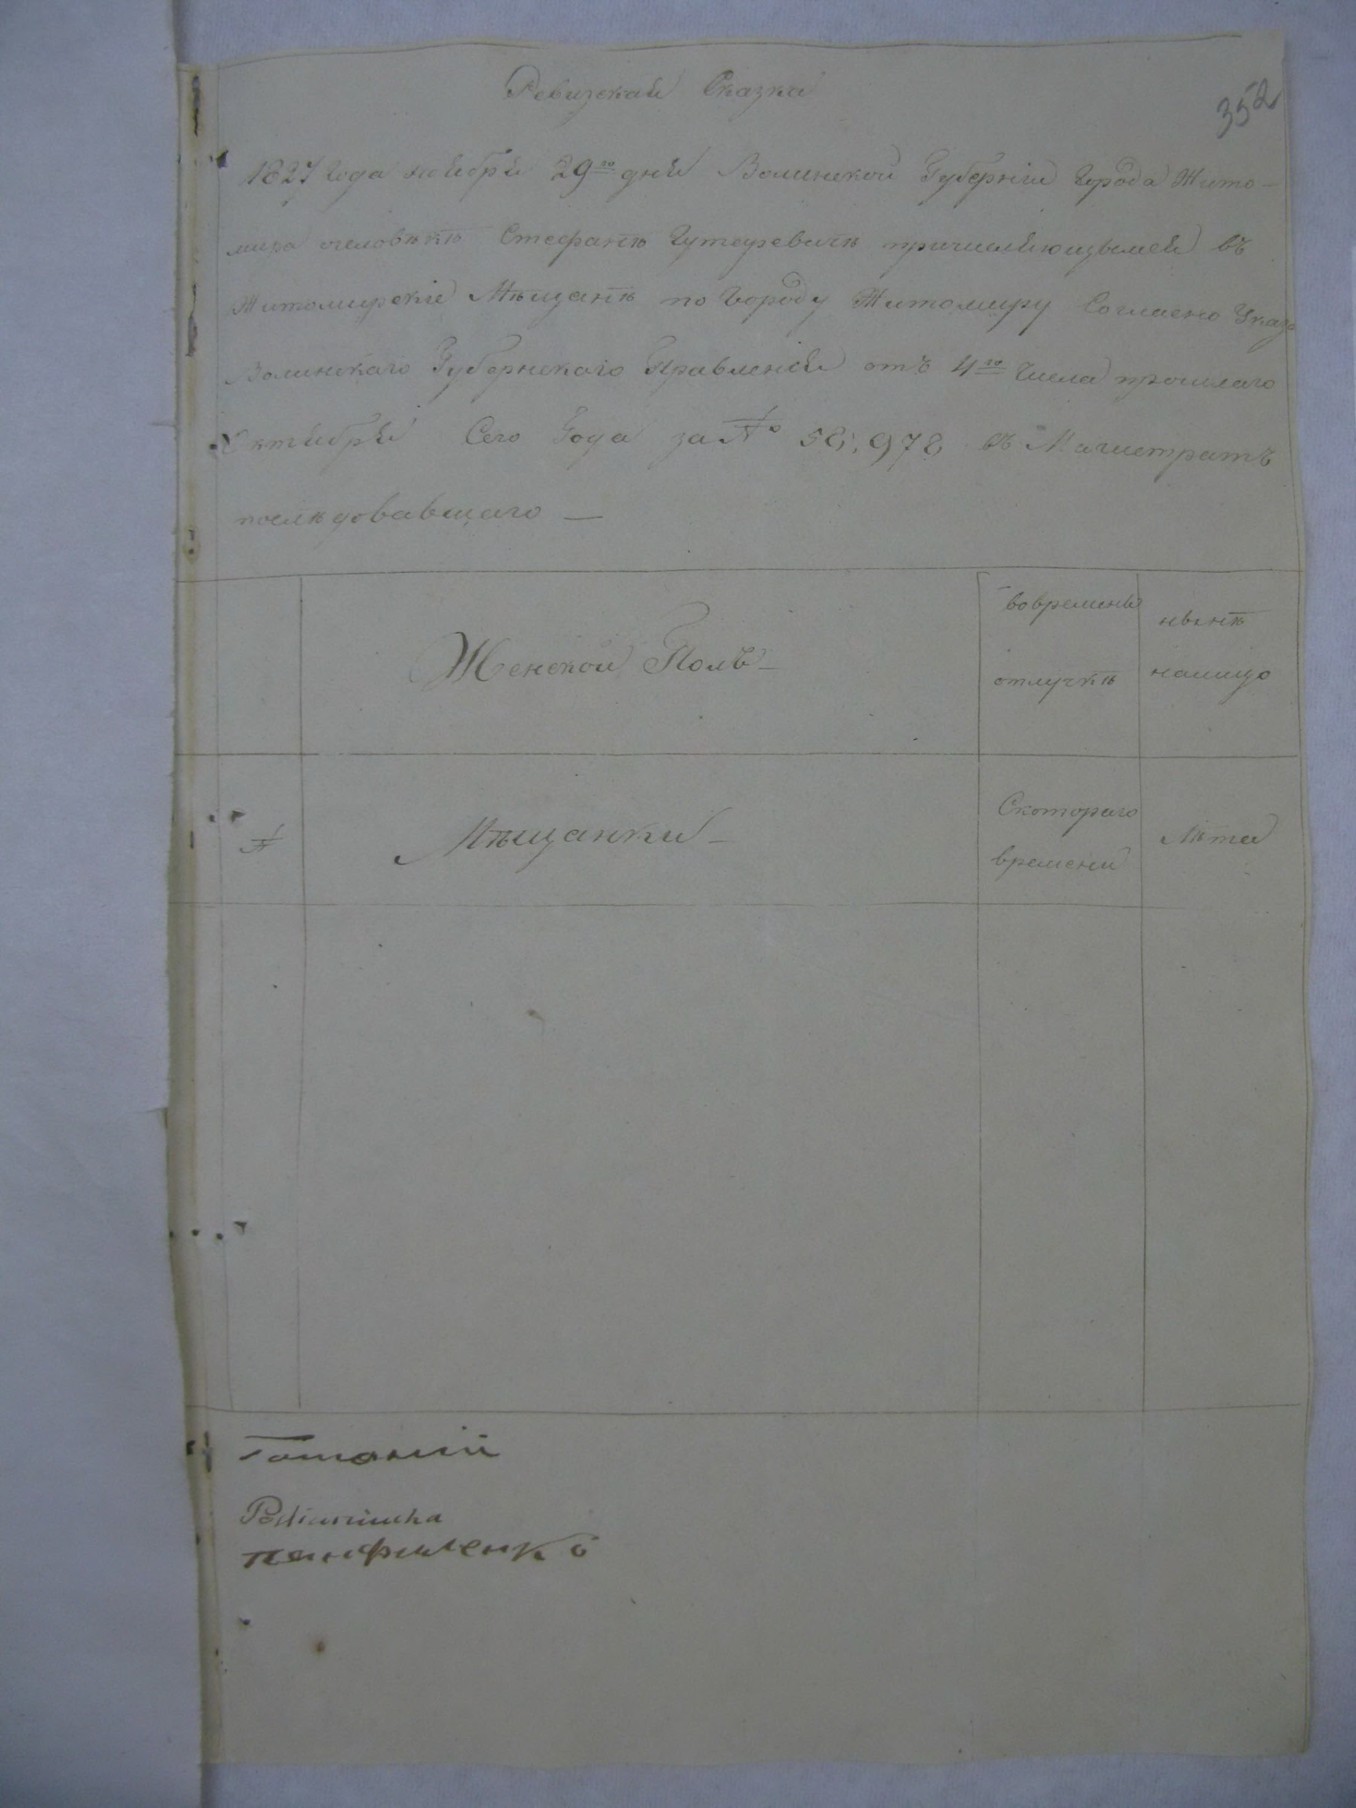 Ревизская Сказка
352
1827 Года ноября 29го дня Волинской Губернии Города Жито-
мира человекъ Стефанъ причисляющыйся въ
Житомирские Мѣщанѣ по Городу Житомиру Согласно Указа
Волинскаго Губернскаго Правления отъ 4го Числа прошлаго
Октября Сего Года за № 58,978 въ Магистратъ
последовавшаго —
Женской Полъ —
вовремены
отлучкѣ
нынѣ
налицо
№
Мѣщанки —
Скотораго
времени
Лѣта